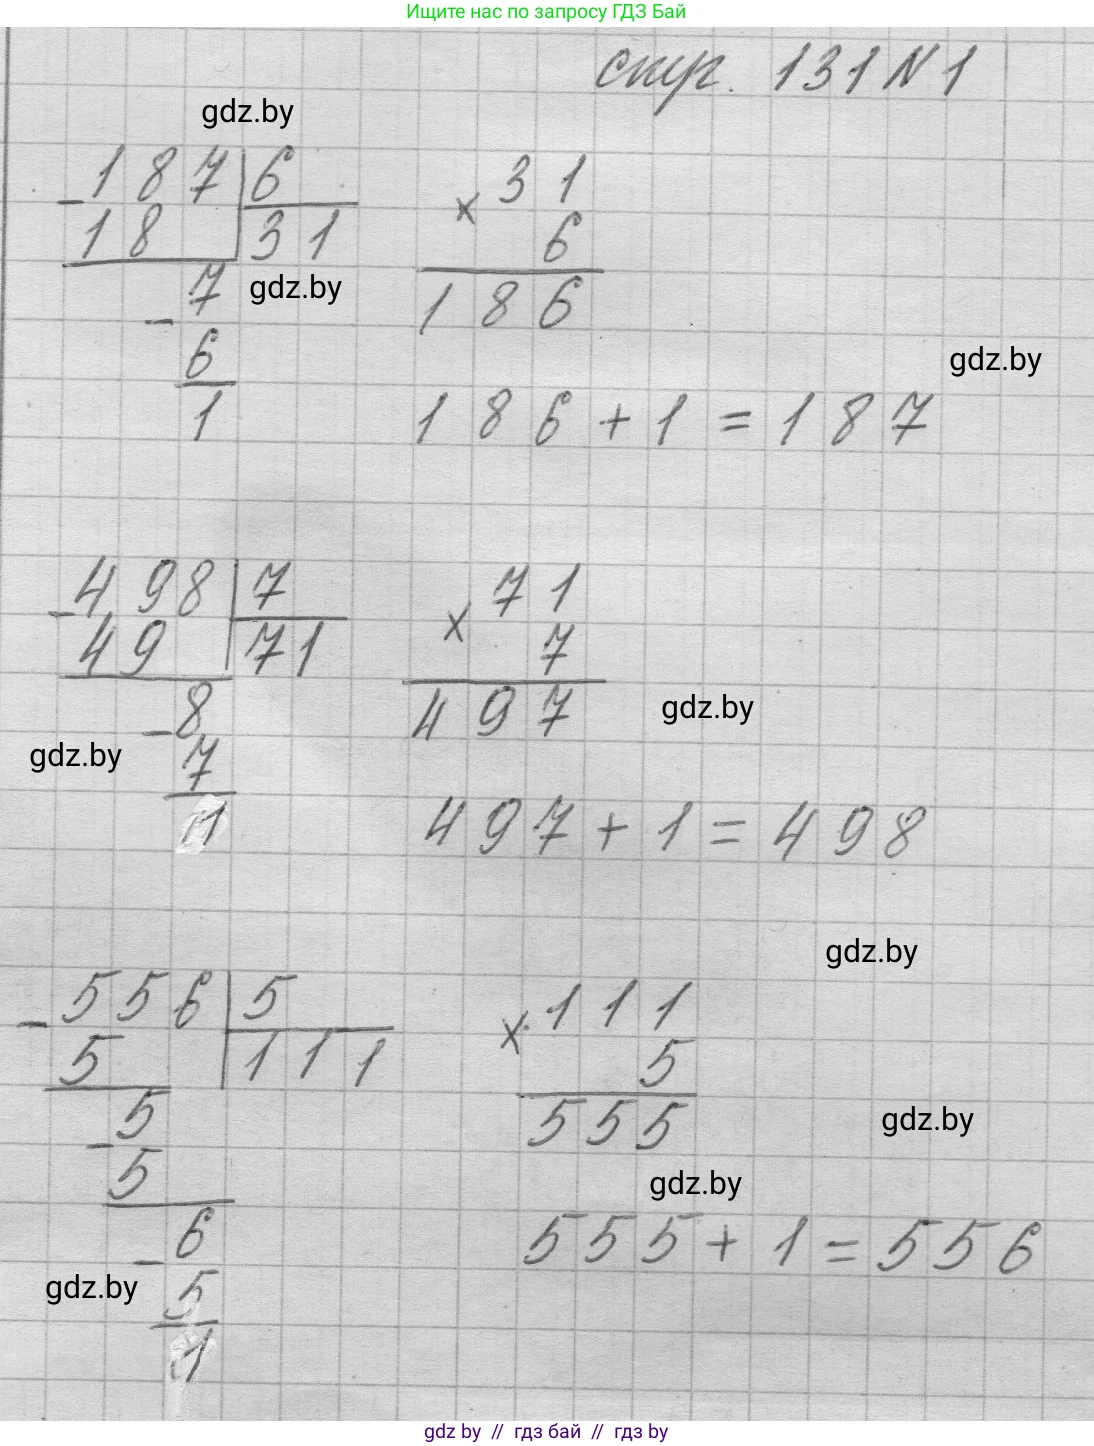 Ищите нас по запросу ГДЗ Бай
стр. 131 N 1
gdz.by
- 187 | 6
18 | 31
7
- 6
1
× 31
6
186
gdz.by
gdz.by
186 + 1 = 187
- 498 | 7
49 | 71
- 8
7
1
× 71
7
497
gdz.by
gdz.by
497 + 1 = 498
gdz.by
- 556 | 5
5 | 111
- 5
5
- 6
5
1
× 111
5
555
gdz.by
gdz.by
555 + 1 = 556
gdz.by
gdz by // гдз бай // гдз by